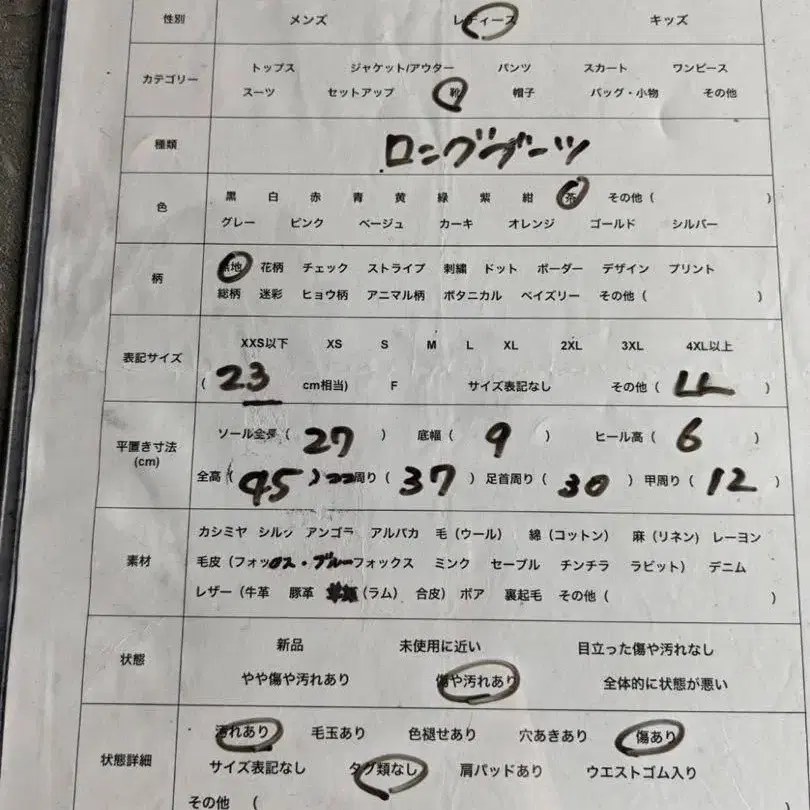 性別 メンズ レディース キッズ
カテゴリー
トップス ジャケット/アウター パンツ スカート ワンピース
スーツ セットアップ 靴 帽子 バッグ・小物 その他
種類 ロングブーツ
色
黒 白 赤 青 黄 緑 紫 紺 茶 その他 ( )
グレー ピンク ベージュ カーキ オレンジ ゴールド シルバー
柄
無地 花柄 チェック ストライプ 刺繍 ドット ボーダー デザイン プリント
総柄 迷彩 ヒョウ柄 アニマル柄 ボタニカル ペイズリー その他 ( )
表記サイズ
XXS以下 XS S M L XL 2XL 3XL 4XL以上
( 23 cm相当) F サイズ表記なし その他 ( LL )
平置き寸法
(cm)
ソール全長 ( 27 ) 底幅 ( 9 ) ヒール高 ( 6 )
全高 ( 45 ) 周り ( 37 ) 足首周り ( 30 ) 甲周り ( 12 )
素材
カシミヤ シルク アンゴラ アルパカ 毛 (ウール) 綿 (コットン) 麻 (リネン) レーヨン
毛皮 (フォックス・ブルーフォックス ミンク セーブル チンチラ ラビット) デニム
レザー (牛革 豚革 (ラム) 合皮) ボア 裏起毛 その他 ( )
状態
新品 未使用に近い 目立った傷や汚れなし
やや傷や汚れあり 傷や汚れあり 全体的に状態が悪い
状態詳細
汚れあり 毛玉あり 色褪せあり 穴あきあり 傷あり
サイズ表記なし タグ類なし 肩パッドあり ウエストゴム入り
その他 (